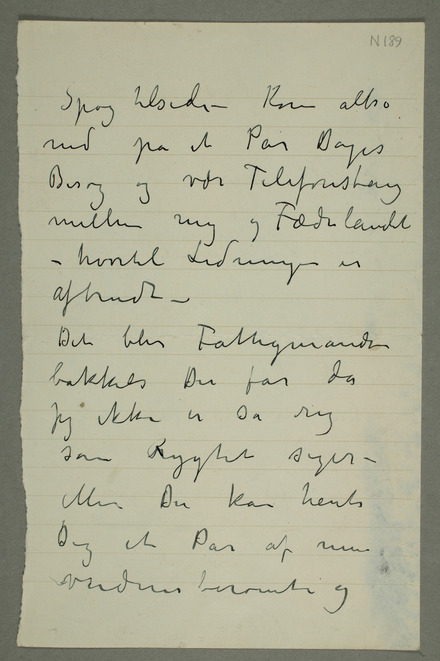 N 189
Spøg tilside – Kom altså
ned på et Par Dages
Besøg og vær Telefonstang
mellem mig og Fædrelandet
– hvortil Ledningen er
afbrudt –
Det blir Fattigmands
bakkels Du får da
jeg ikke er så rig
som Rygtet siger –
Men Du kan hente
Dig et Par af mine
verdensberømte og